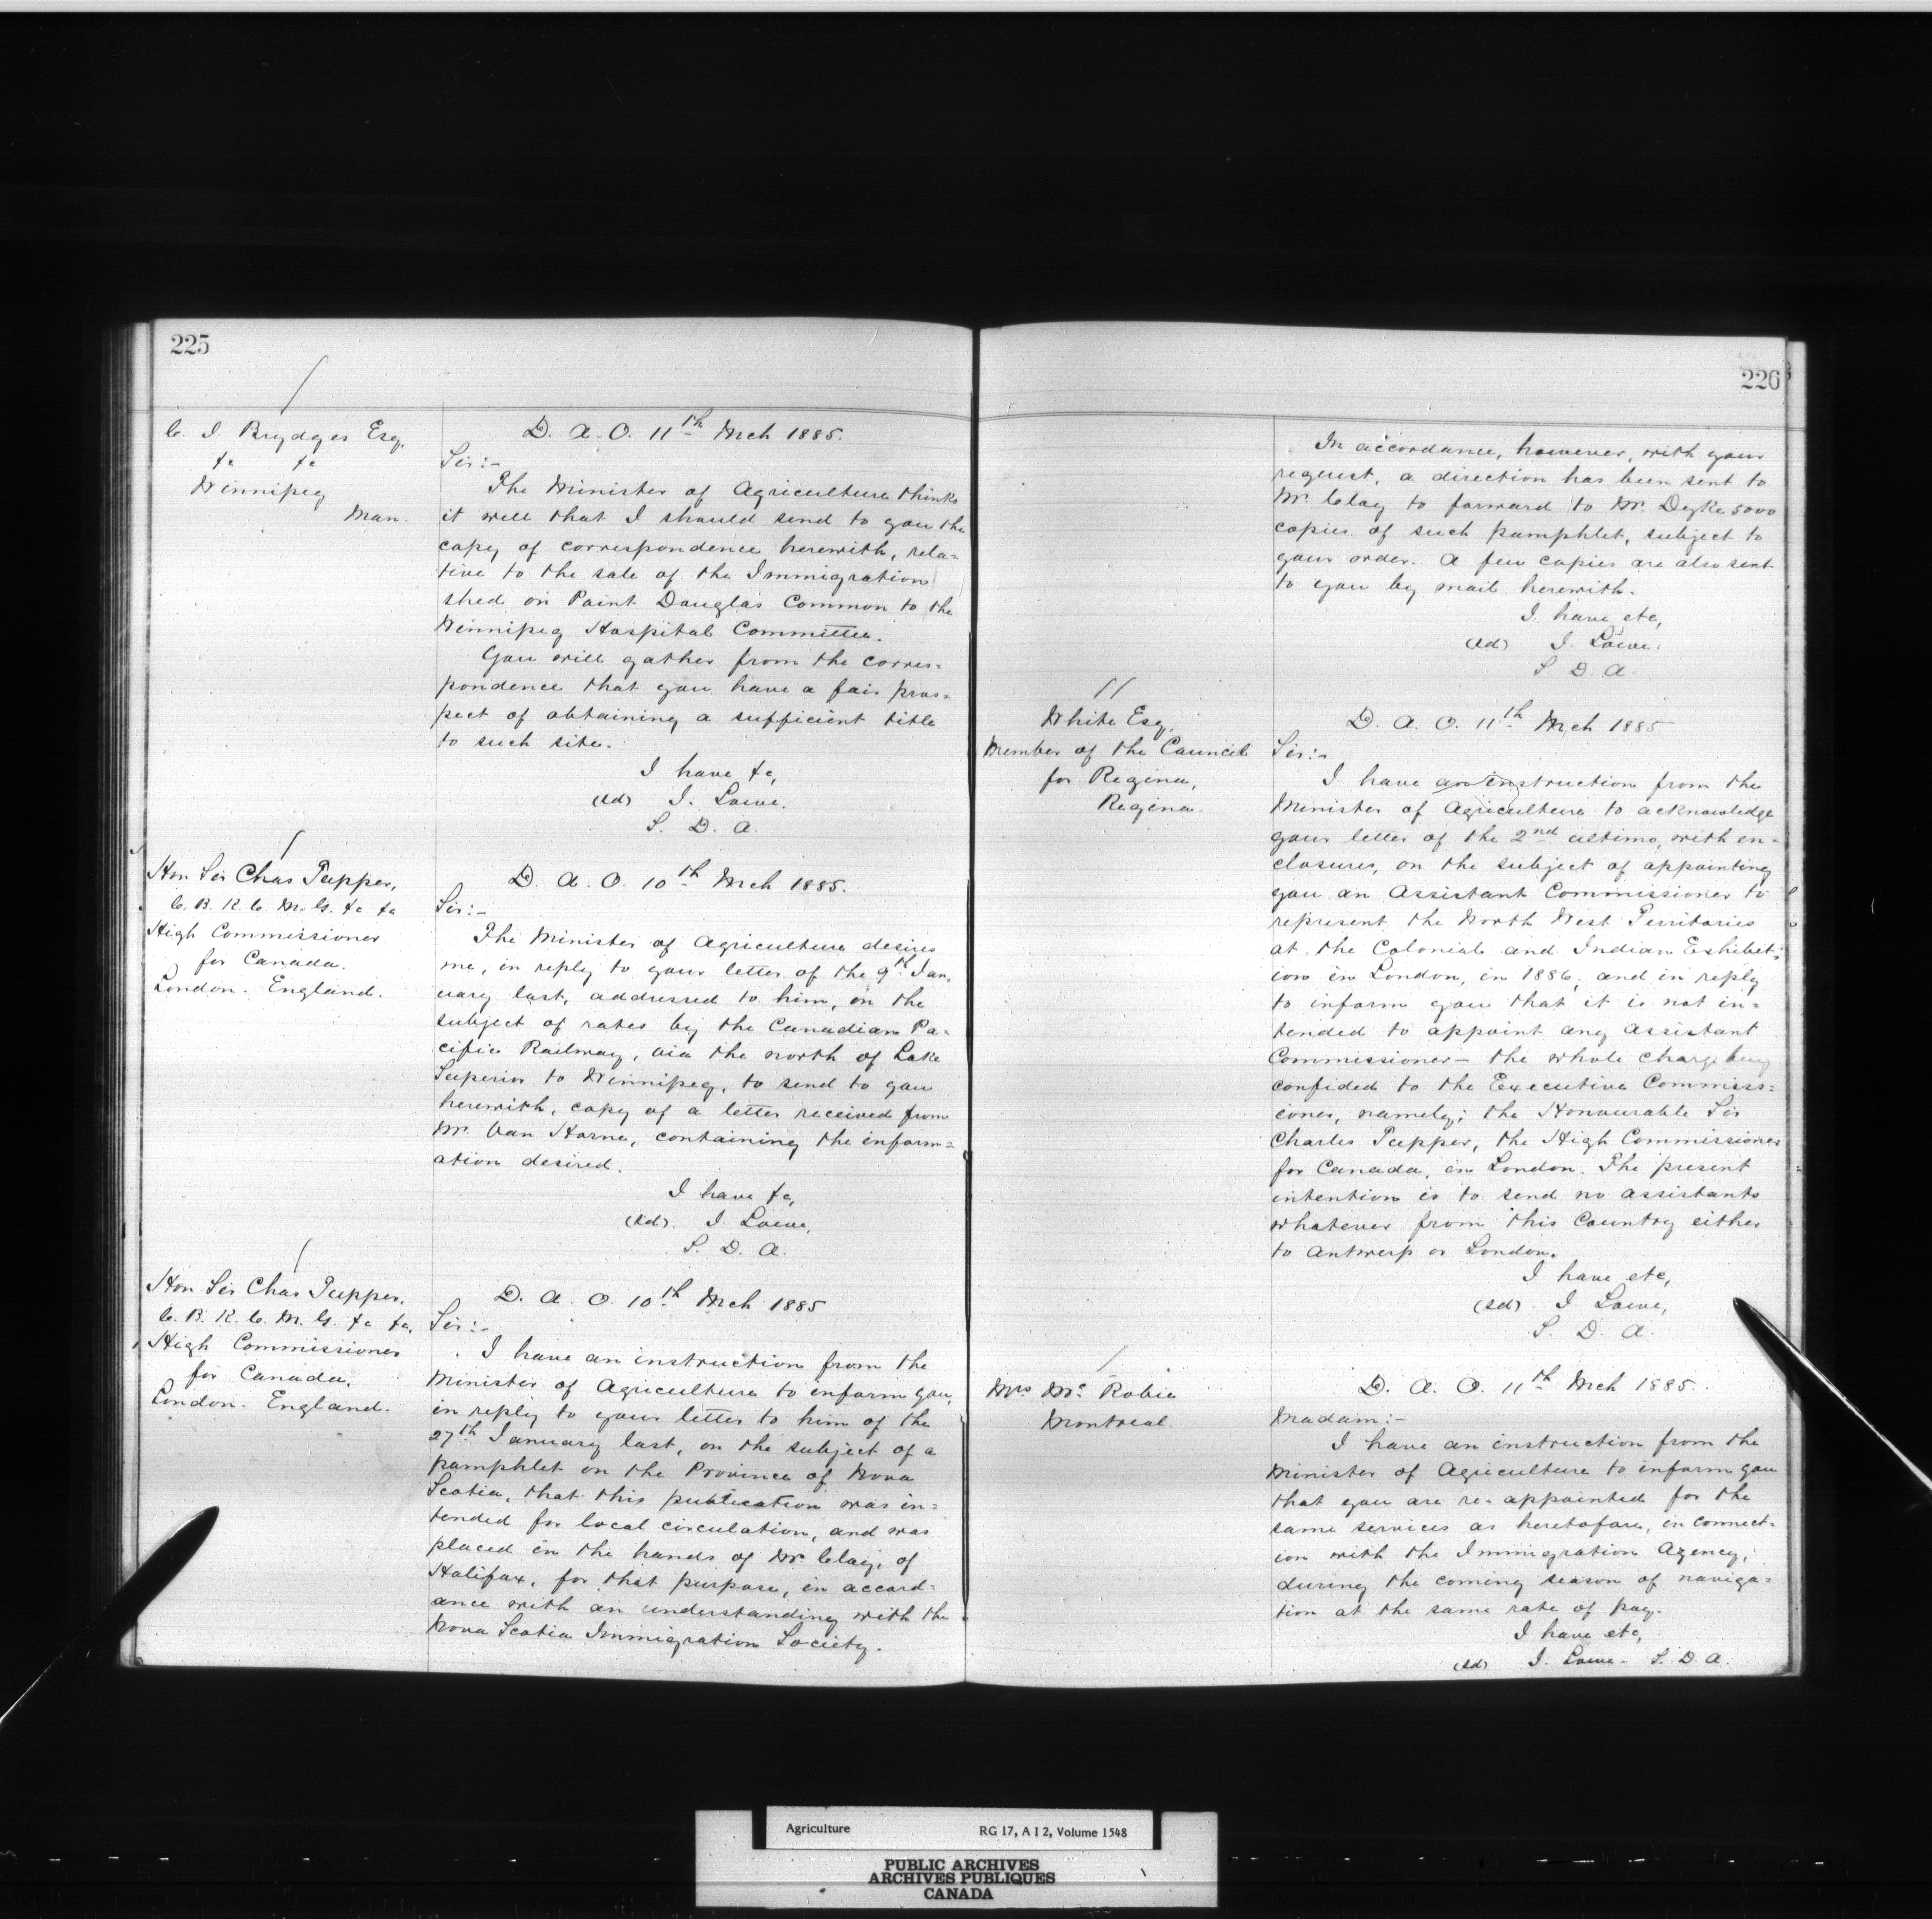 225
C. J. Brydges Esq.
&c &c
Winnipeg
Man.
D. A. O. 11th Mch 1885.
Sir:-
The Minister of Agriculture thinks
it well that I should send to you the
copy of correspondence herewith, rela=
tive to the sale of the Immigration
shed on Point Douglas Common to the
Winnipeg Hospital Committee.
You will gather from the corres=
pondence that you have a fair pros=
pect of obtaining a sufficient title
to such site.
I have &c,
(sd) J. Lowe.
S. D. A.
Hon Sir Chas Tupper,
C. B. K. C. M. G. &c &c
High Commissioner
for Canada.
London. England.
D. A. O. 10th Mch 1885.
Sir:-
The Minister of Agriculture desires
me, in reply to your letter of the 9th Jan,
uary last, addressed to him, on the
subject of rates by the Canadian Pa=
cific Railway, via the north of Lake
Superior to Winnipeg, to send to you
herewith, copy of a letter received from
Mr. Van Horne, containing the inform=
ation desired.
I have &c,
(sd) J. Lowe,
S. D. A.
Hon Sir Chas Tupper,
C. B. K. C. M. G. &c &c,
High Commissioner
for Canada,
London. England.
D. A. O. 10th Mch 1885
Sir:-
I have an instruction from the
Minister of Agriculture to inform you,
in reply to your letter to him of the
27th January last, on the subject of a
pamphlet on the Province of Nova
Scotia, that this publication was in=
tended for local circulation, and was
placed in the hands of Mr. Clay, of
Halifax, for that purpose, in accord=
ance with an understanding with the
Nova Scotia Immigration Society.
226
In accordance, however, with your
request, a direction has been sent to
Mr. Clay to forward to Mr. Dyke 5000
copies of such pamphlet, subject to
your order. A few copies are also sent
to you by mail herewith.
I have etc,
(sd) J. Lowe.
S D A.
White Esq,
Member of the Council
for Regina,
Regina.
D. A. O. 11th Mch 1885
Sir:-
I have an instruction from the
Minister of Agriculture to acknowledge
your letter of the 2nd ultimo, with en=
closures, on the subject of appointing
you an Assistant Commissioner to
represent the North West Territories
at the Colonial and Indian Exhibit=
ion in London, in 1886, and in reply
to inform you that it is not in=
tended to appoint any Assistant
Commissioner - the whole charge being
confided to the Executive Commiss=
ioner, namely; the Honourable Sir
Charles Tupper, the High Commissioner
for Canada, in London. The present
intention is to send no assistants
whatever from this Country either
to Antwerp or London.
I have etc,
(sd) J Lowe,
S. D. A.
Mrs Mc Robie
Montreal.
D. A. O. 11th Mch 1885.
Madam:-
I have an instruction from the
Minister of Agriculture to inform you
that you are re-appointed for the
same services as heretofore, in connect=
ion with the Immigration Agency,
during the coming season of naviga=
tion at the same rate of pay.
I have etc,
(sd) J. Lowe - S. D. A.
Agriculture RG 17, A I 2, Volume 1548
PUBLIC ARCHIVES
ARCHIVES PUBLIQUES
CANADA